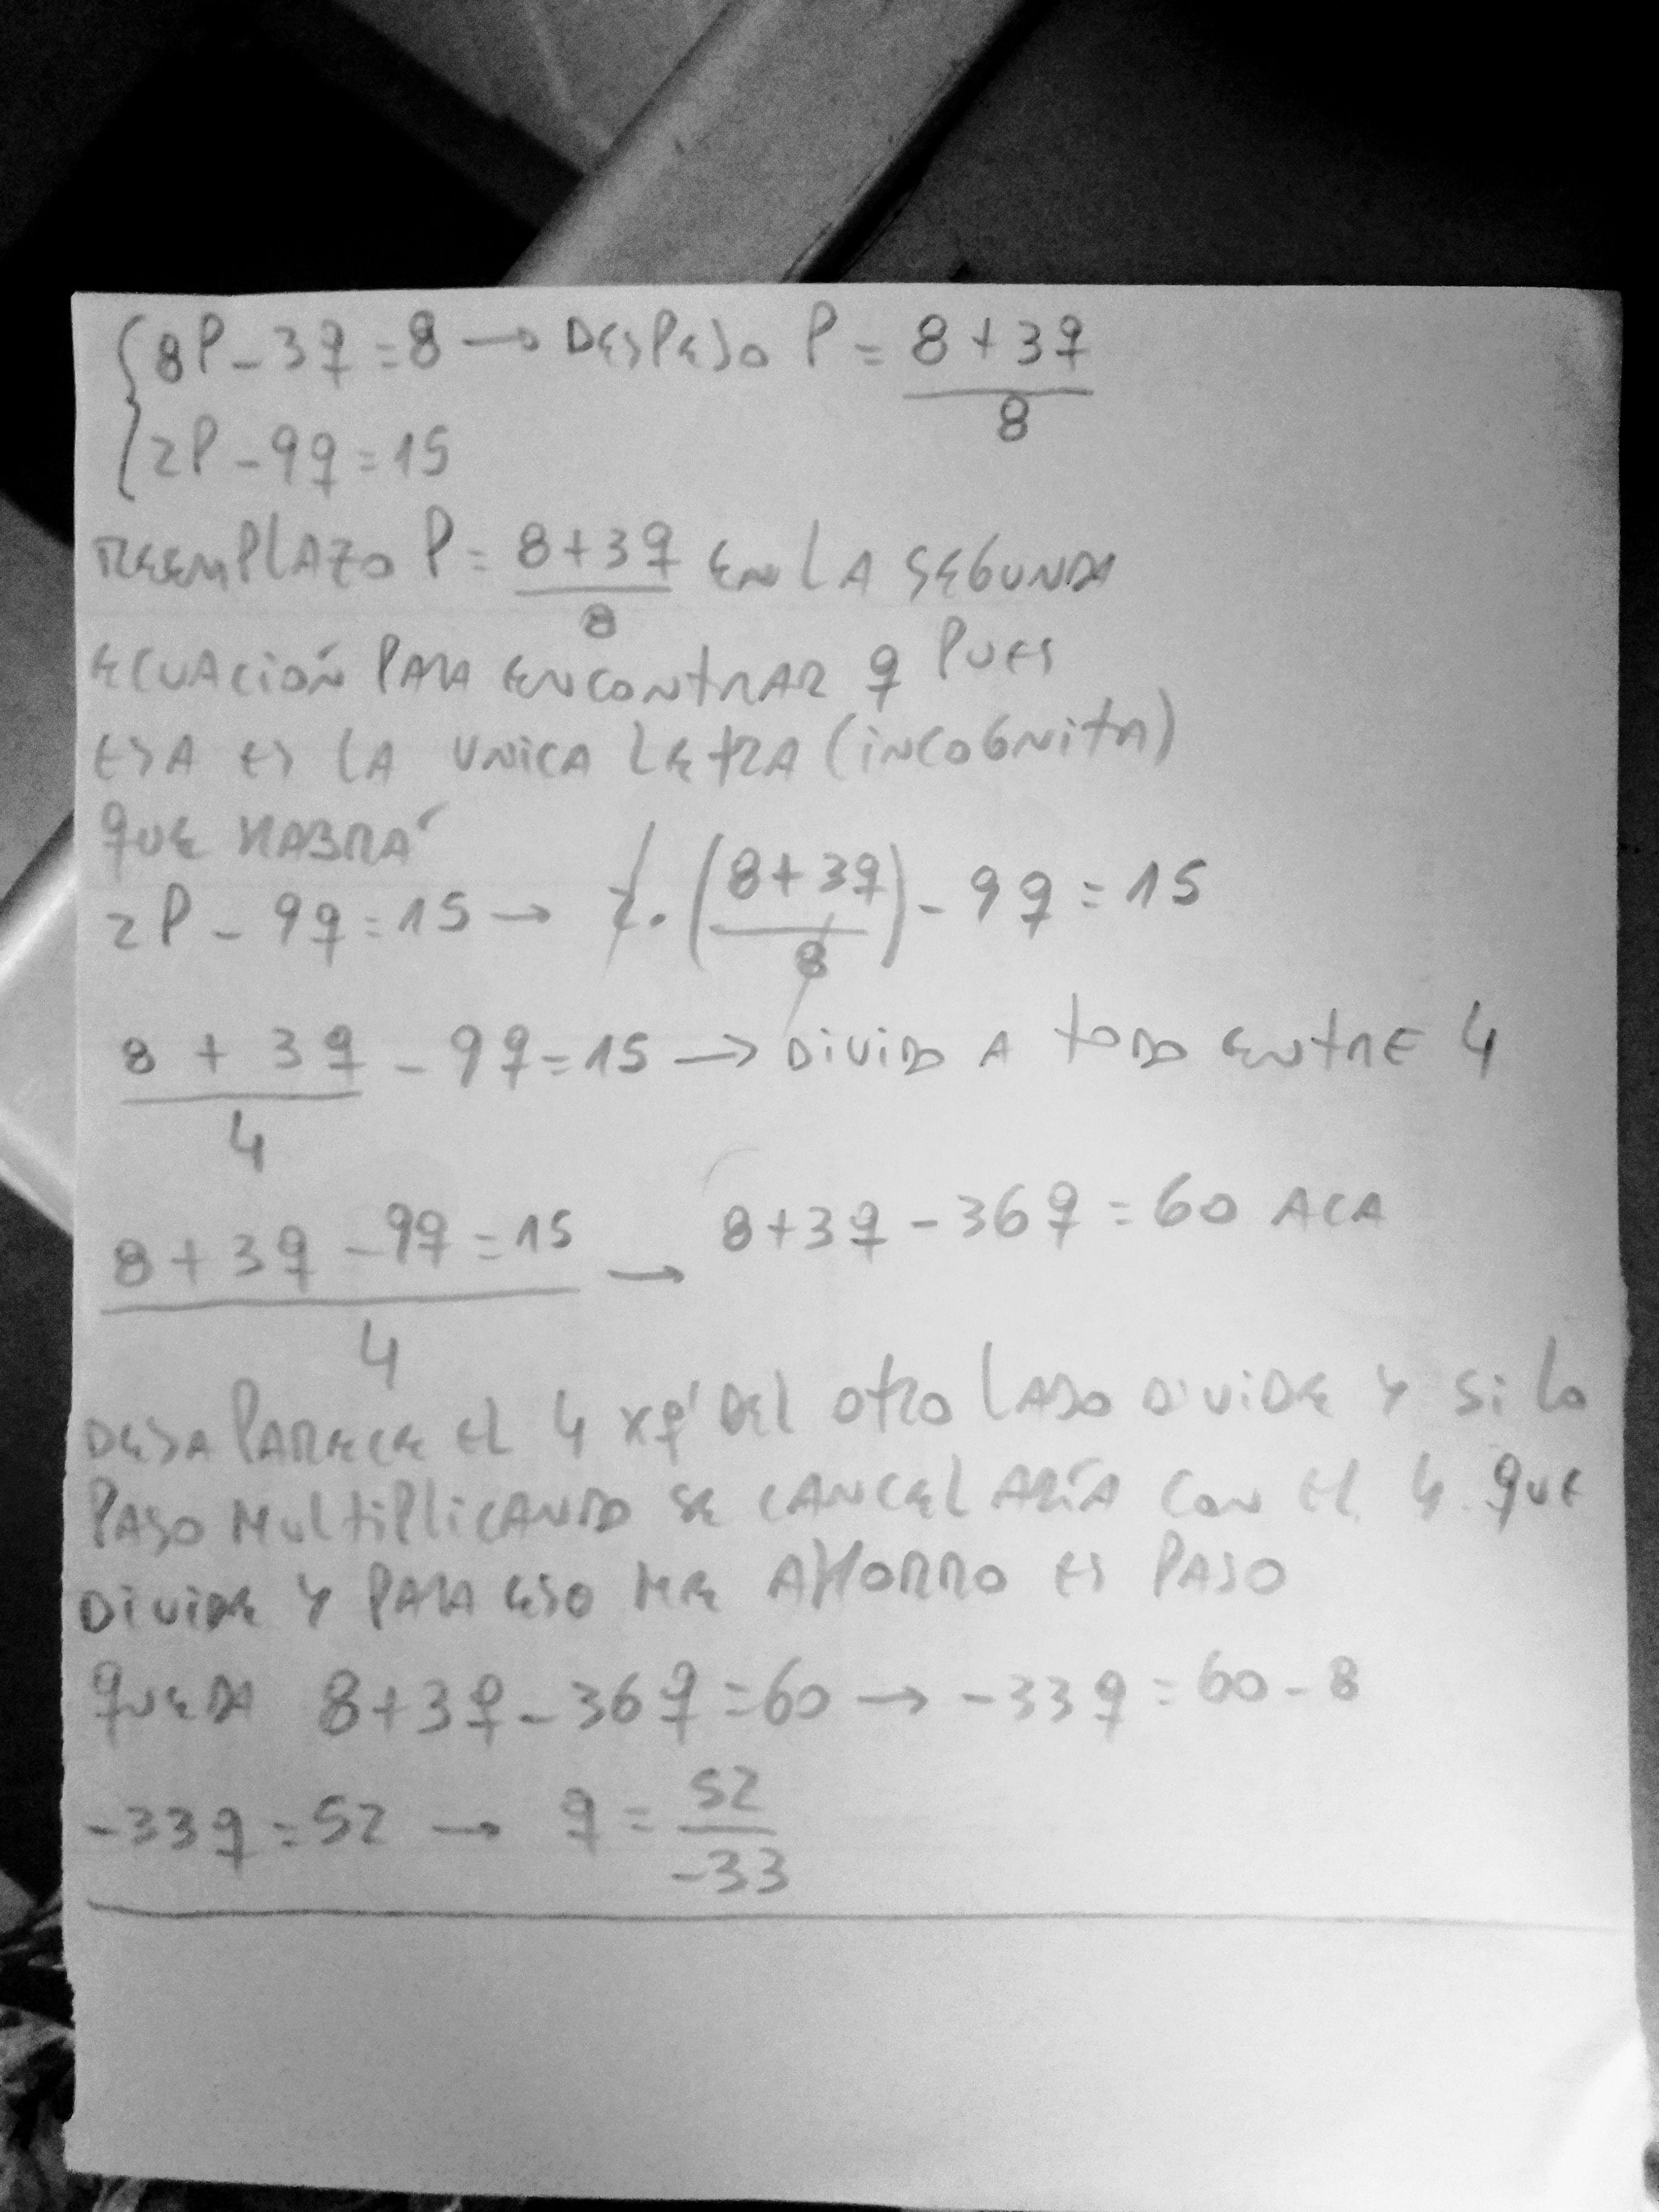 8P - 3q = 8 → DESPEJO P = (8 + 3q)/8
2P - 9q = 15
REEMPLAZO P = (8+3q)/8 EN LA SEGUNDA
ECUACIÓN PARA ENCONTRAR q PUES
ESA ES LA UNICA LETRA (INCOGNITA)
QUE HABRÁ
2P - 9q = 15 → 2 · ((8+3q)/8) - 9q = 15
(8 + 3q)/4 - 9q = 15 → DIVIDO A TODO ENTRE 4
(8 + 3q - 9q = 15)/4 → 8+3q - 36q = 60 ACA
DESAPARECE EL 4 xq' DEL OTRO LADO DIVIDE Y SI LO
PASO MULTIPLICANDO SE CANCELARÍA CON EL 4 QUE
DIVIDE Y PARA ESO ME AHORRO ES PASO
QUEDA 8+3q - 36q = 60 → -33q = 60 - 8
-33q = 52 → q = 52/-33